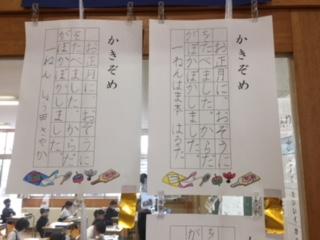 かきぞめ
お正月に、おぞうに
をたべました。からだ
がぽかぽかしました。
一ねん
かきぞめ
お正月に、おぞうに
をたべました。からだ
がぽかぽかしました。
一ねん はま本